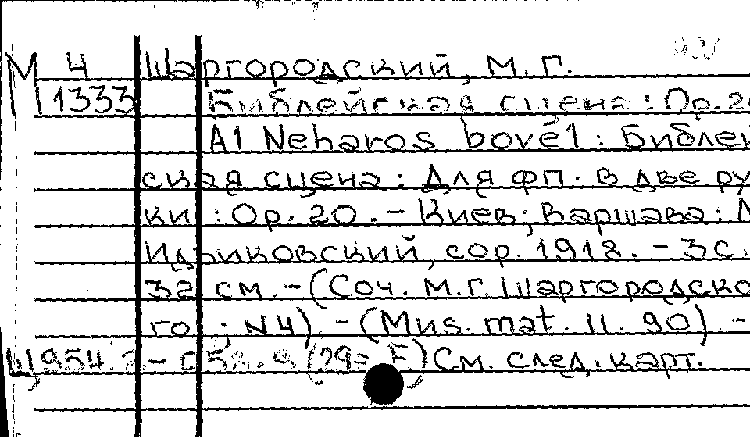 М 4 Шаргородский, М. Г.
1333 Библейская сцена: Ор. 20
Al Neharos bovel: Библей
ская сцена: Для фп. в две ру
ки: Ор. 20. - Киев; Варшава:
Идзиковский, cop. 1912. - 3 с.
32 см. - (Соч. М. Г. Шаргородско
го; N4). - (Mus. mat. II. 90). -
См. след. карт.